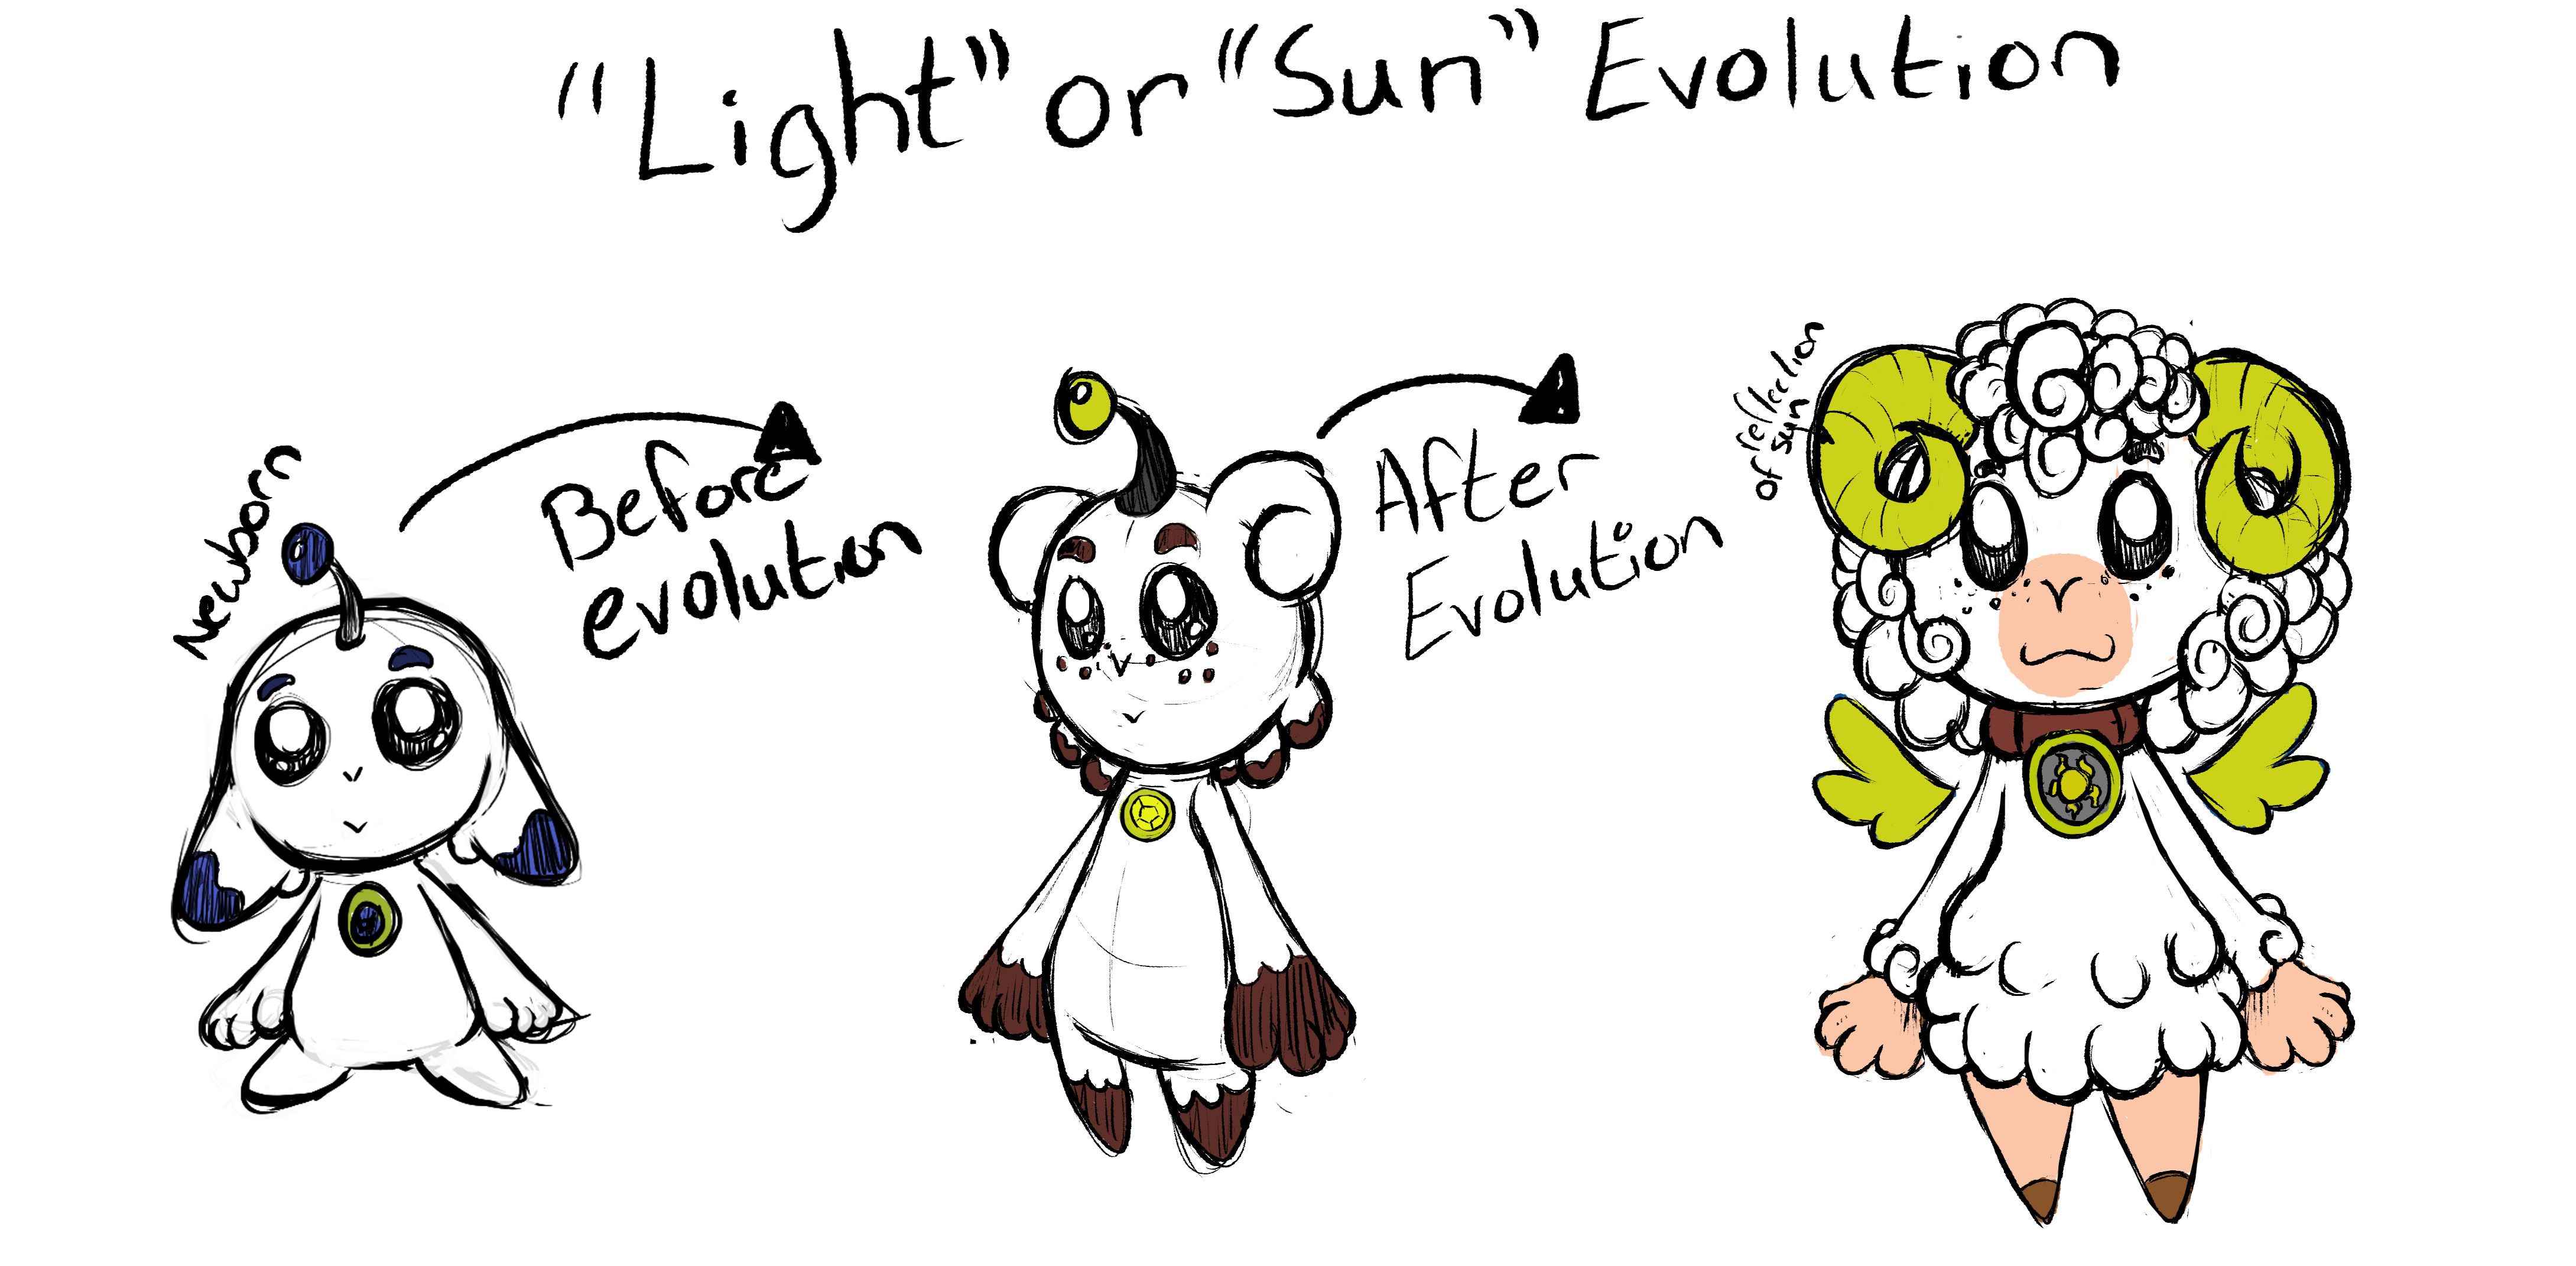 "Light" or "Sun" Evolution
Newborn
Before
evolution
After
Evolution
reflection
of sun